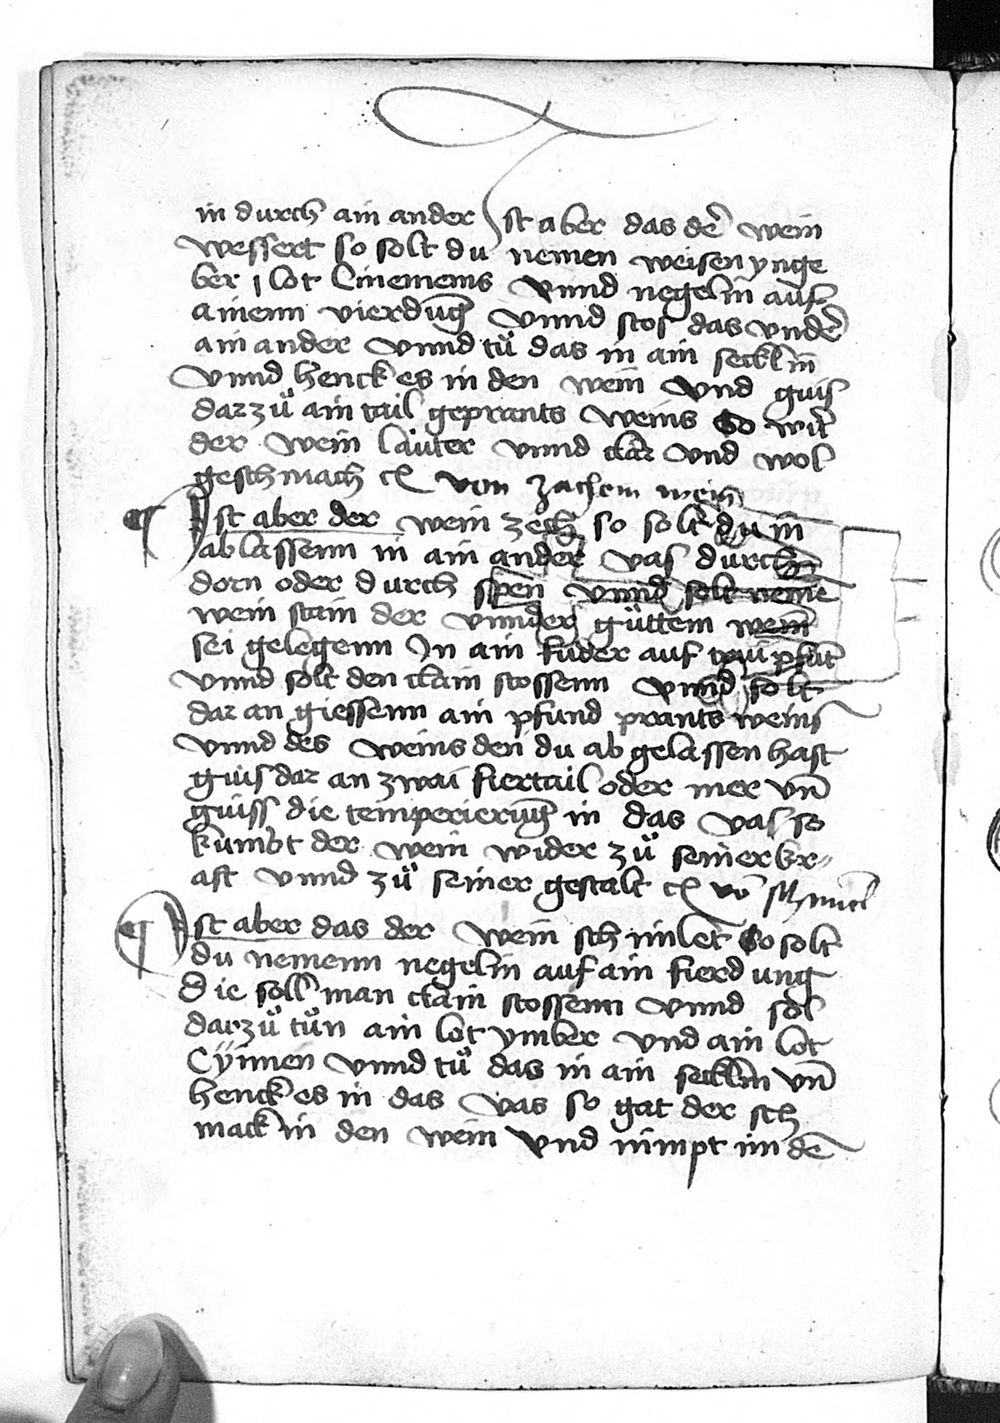 in durch ain ander Ist aber das der̄ wein
wessert so solt du nemen weisen ynge
ber j lot Cinemems vnnd negelin auf
ainenn vierdung vnnd stos das vnder̄
ain ander vnnd tů das in ain secklin
vnnd henck es in den wein vnd guis
darzů ain tail geprants weins So wirt
der wein lauter vnnd clar vnd wol
geschmach ꝛc von zachem wein
¶ Ist aber der wein zech so solt du in
ablassenn in ain ander vas durch
dorn oder durch spen vnnd solt neme
wein stain der vnnder gůttem wein
sei gelegenn In ain fuder auf pfūt
vnnd solt den clain stossenn vnnd solt
dar an giessenn ain pfund prants weins
vnnd des weins den du ab gelassen hast
guis dar an zwai fiertail oder mer vn̄
guiss die temperierung in das vas so
kumbt der wein wider zů seiner kr
aft vnnd zů seiner gestalt ꝛc vō
¶ Ist aber das der wein schimlet So solt
du nemenn negelin auf ain fierdung
die soll man clain stossenn vnnd sol
darzů tůn ain lot ymber vnd ain lot
Cÿnnen vnnd tů das in ain secklin vn̄
henck es in das vas so gat der sch
mack in den wein vnd nimpt im dē